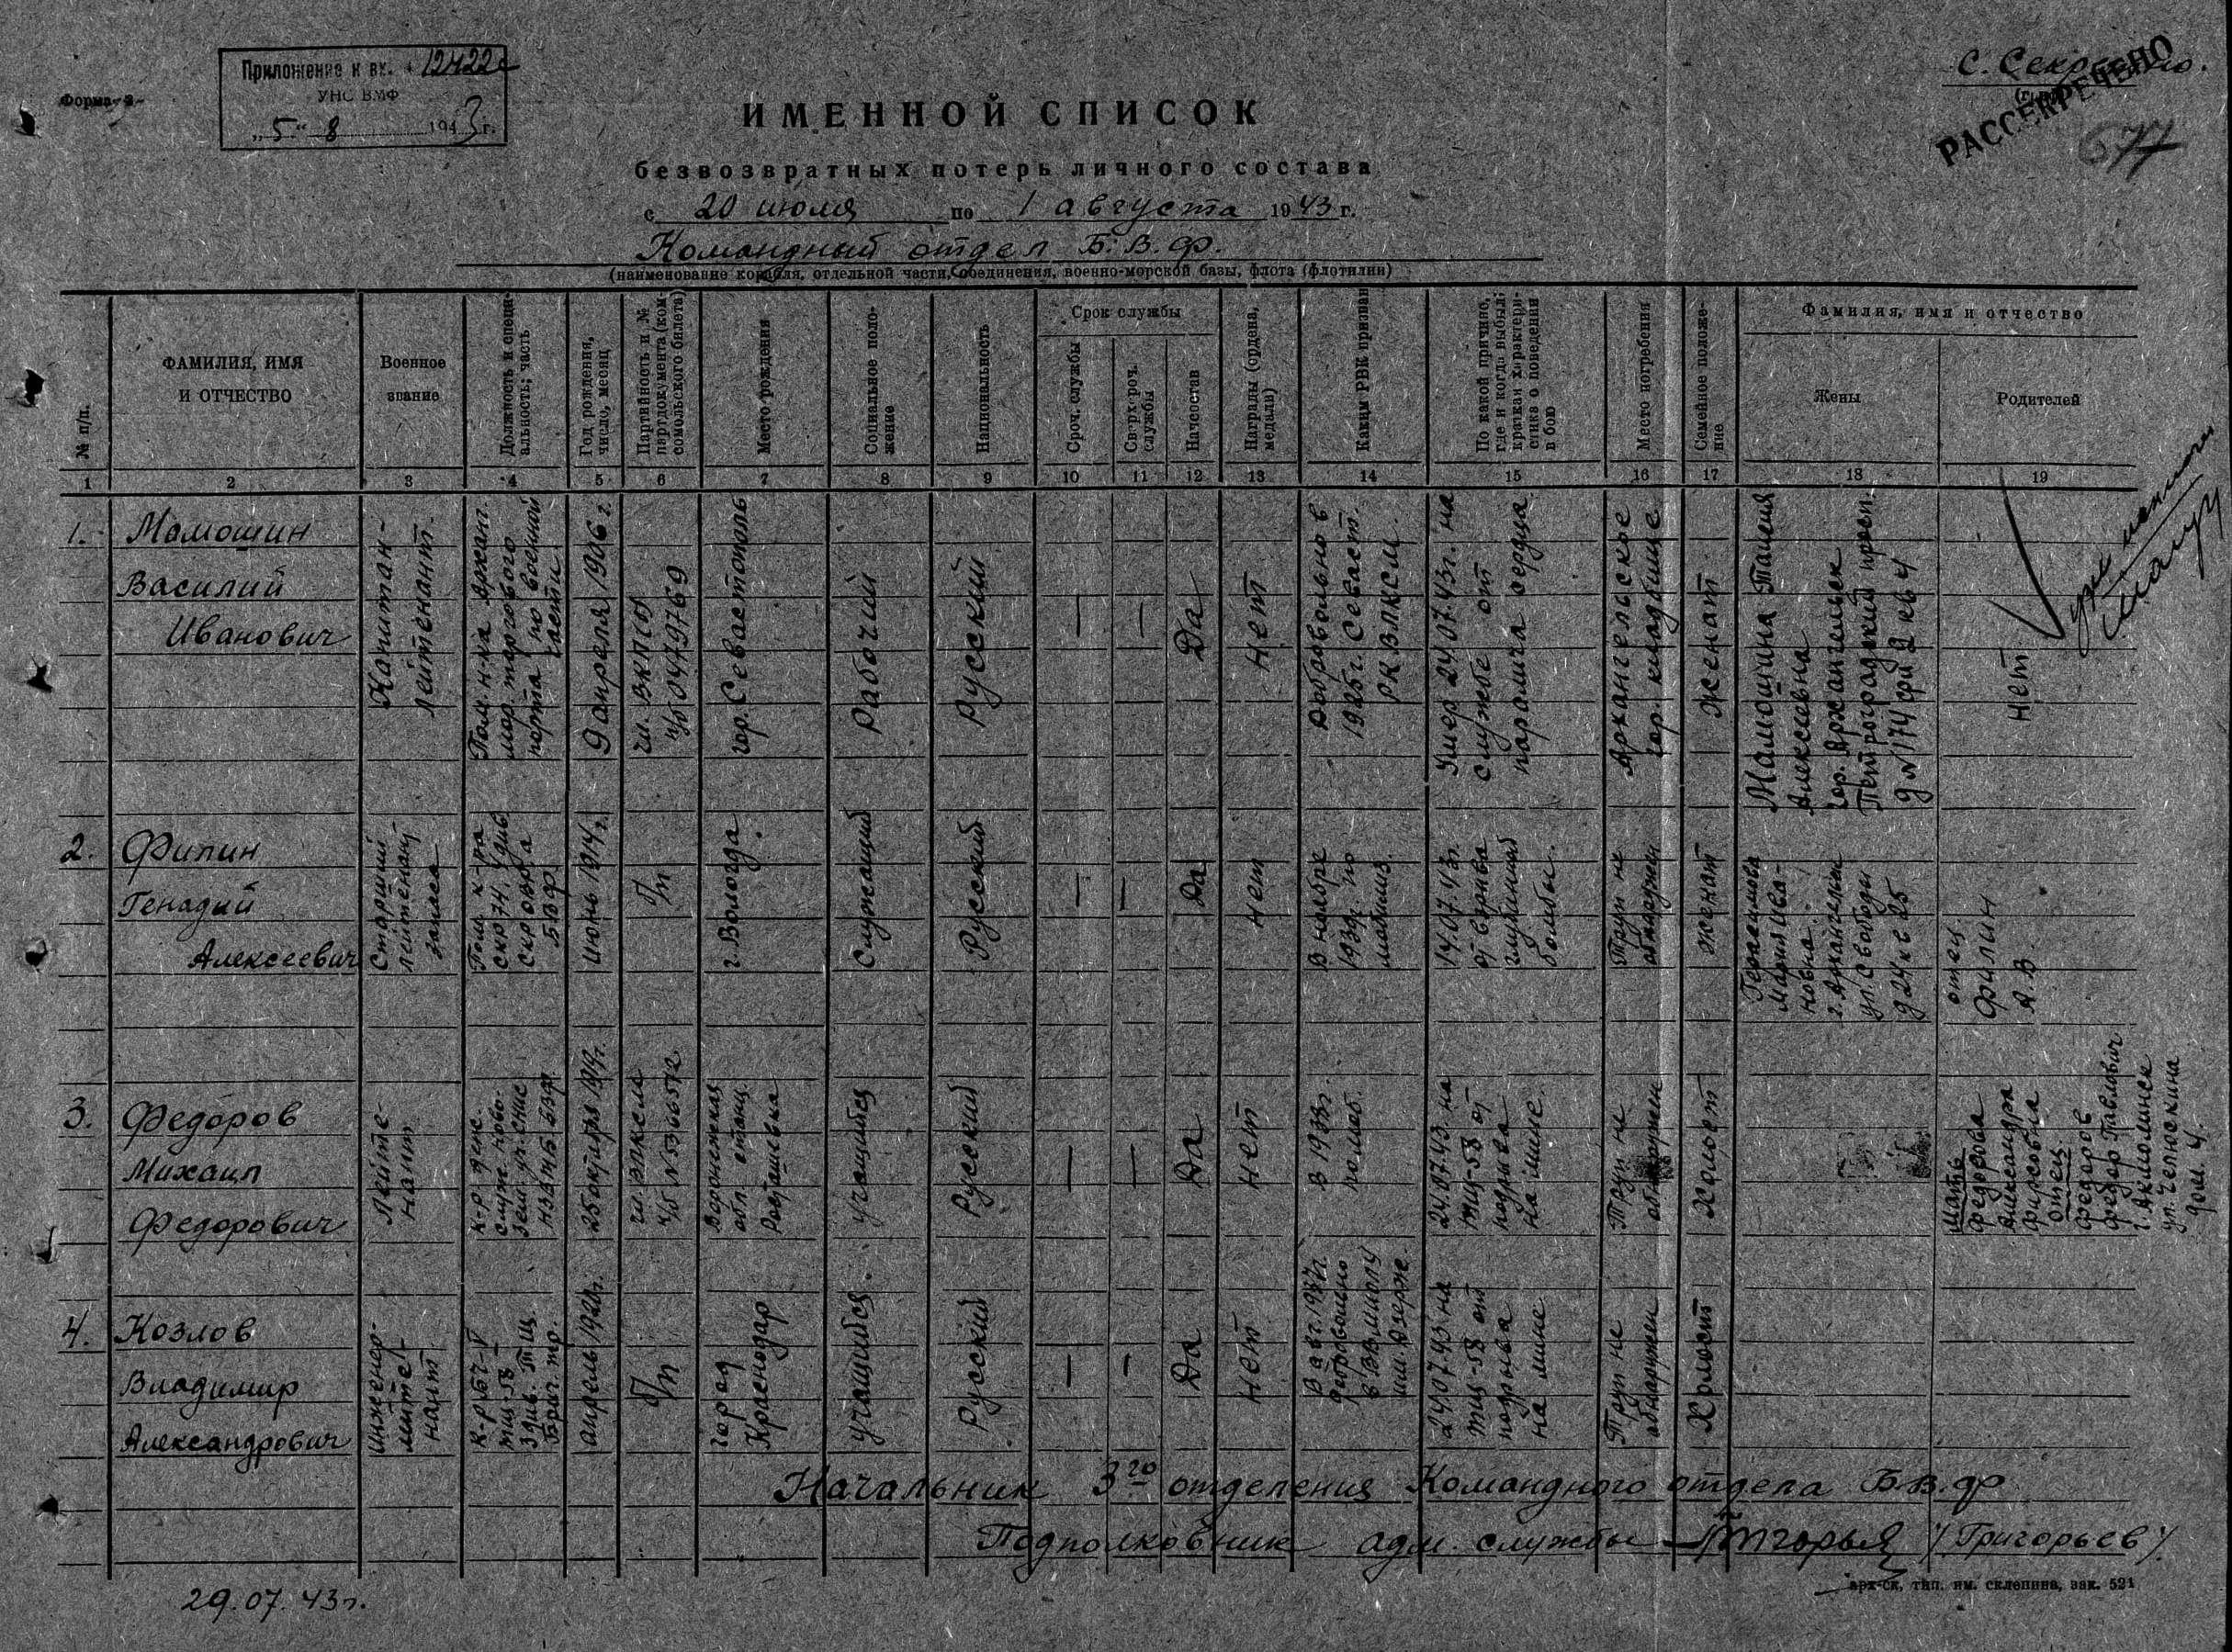 Форма-3-
Приложение к вх. 12422с
УНС ВМФ
„5“ 8 1943 г.
С. Секретно.
РАССЕКРЕЧЕНО
677
ИМЕННОЙ СПИСОК
безвозвратных потерь личного состава
с 20 июля по 1 августа 1943 г.
Командный отдел Б.В.Ф.
(наименование корабля, отдельной части, соединения, военно-морской базы, флота (флотилии)
№ п/п.
ФАМИЛИЯ, ИМЯ
И ОТЧЕСТВО
Военное
звание
Должность и специ-
альность; часть
Год рождения,
число, месяц
Партийность и №
партдокумента (ком-
сомольского билета)
Место рождения
Социальное поло-
жение
Национальность
Срок службы
Сроч. службы
Сверх-роч.
службы
Начсостав
Награды (ордена,
медали)
Каким РВК призван
По какой причине,
где и когда выбыл;
краткая характери-
стика о поведении
в бою
Место погребения
Семейное положе-
ние
Фамилия, имя и отчество
Жены
Родителей
1 2 3 4 5 6 7 8 9 10 11 12 13 14 15 16 17 18 19
1.
Мамошин
Василий
Иванович
Капитан-
лейтенант
Пом. н-ка Арханг.
мор. торгового
порта по военной
части.
9 апреля 1906 г.
чл. ВКП(б)
п/б 0479769
гор. Севастополь
Рабочий
Русский
—
—
Да
Нет
Добровольно в
192 г. Севаст.
РК ВЛКСМ.
Умер 24.07.43г. на
службе от
паралича сердца.
Архангельское
гор. кладбище
Женат
Мамошина Таисия
Алексеевна
гор. Архангельск
Петроградский просп.
д №174 кв 4
Нет
2.
Филин
Генадий
Алексеевич
Старший
лейтенант
запаса
Пом. к-ра
СКР 74,
БВФ
июнь 1914 г.
б/п
г. Вологда
Служащий
Русский
—
—
Да
Нет
В ноябре
193 г. по
мобилиз.
14.07.43г.
от взрыва
глубинной
бомбы.
Труп не
обнаружен
женат
Герасимова
Мария Ива-
новна
г. Архангельск
ул. Свободы
д 24 кв 25
отец
Филин
А.В.
3.
Федоров
Михаил
Федорович
Лейте-
нант
25 октября 19 г.
чл. ВЛКСМ
Воронежская
обл. станц.
учащийся
Русский
—
—
Да
Нет
В 1938г.
по моб.
24.07.43 на
ТЩ-58 от
подрыва
на мине.
Труп не
обнаружен
Холост
Мать
Федорова
Александра
Фирсовна
отец
Федоров
Федор Павлович
г. Акмолинск
ул. Челюскина
дом 4.
4.
Козлов
Владимир
Александрович
Инженер-
лейте-
нант
к-р БЧ-V
ТЩ-58
3 див. ТЩ.
Бриг. тр.
апрель 1920г.
б/п
город
Краснодар
учащийся.
Русский
—
—
Да
Нет
В авг. 1937г.
добровольно
в ВВМ школу
им. Дзерж.
24.07.43 на
ТЩ-58 от
подрыва
на мине
Труп не
обнаружен
Холост
Начальник 3го отделения Командного отдела Б.В.Ф
Подполковник адм. службы /Григорьев/.
29.07.43г.
арх-ск, тип. им. склепина, зак. 521